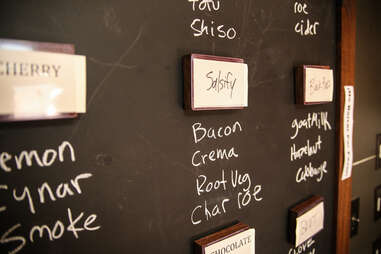 CHERRY
emon
cynar
smoke
Tofu
Shiso
Salsify
Bacon
Crema
Root Veg
Char roe
CHOCOLATE
roe
cider
goat Milk
Hazelnut
Cabbage
CLOVE